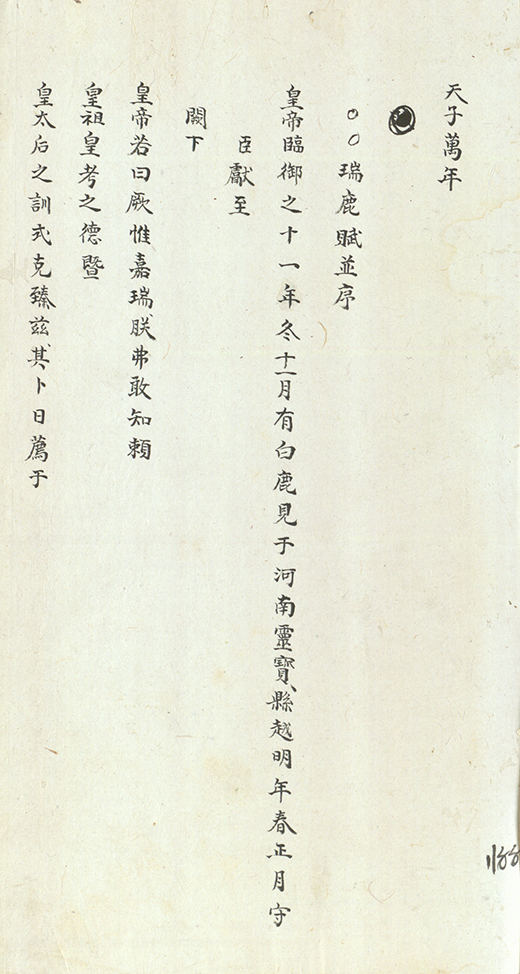 天子萬年
○○瑞鹿賦並序
皇帝臨御之十一年冬十一月有白鹿見于河南靈寶縣越明年春正月守
臣獻至
闕下
皇帝若曰厥惟嘉瑞朕弗敢知賴
皇祖皇考之德暨
皇太后之訓式克臻茲其卜日薦于